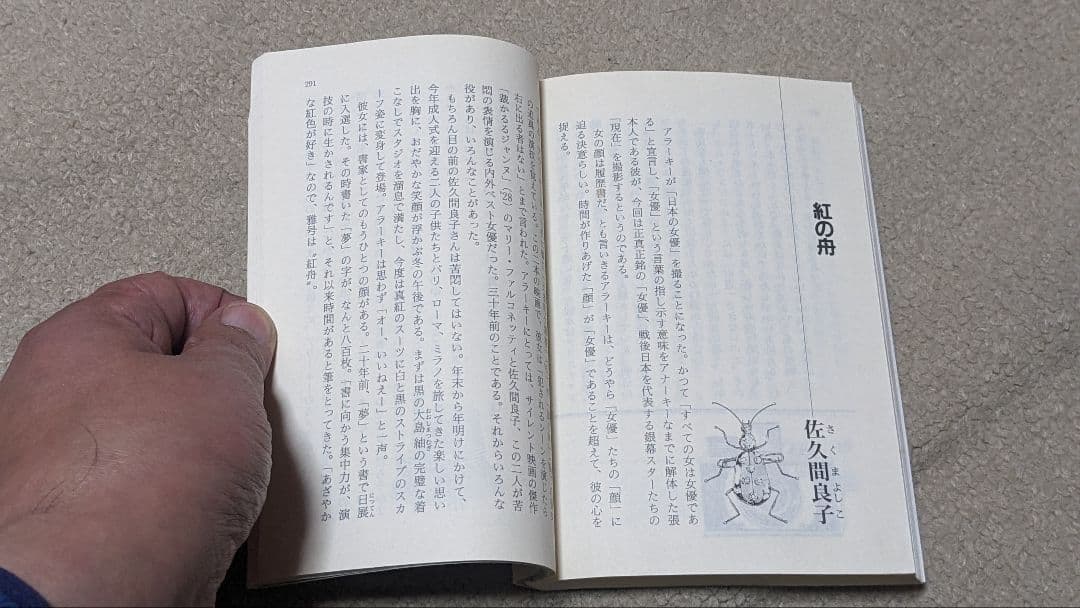 紅の舟
佐久間良子
さくまよしこ
アラーキーが「日本の女優」を撮ることになった。かつて「すべての女は女優であ
る」と宣言し、「女優」という言葉の指し示す意味をアナーキーなまでに解体した張
本人である彼が、今回は正真正銘の「女優」、戦後日本を代表する銀幕スターたちの
「現在」を撮影するというのである。
女の顔は履歴書だ、とも言いきるアラーキーは、どうやら「女優」たちの「顔」に
迫る決意らしい。時間が作りあげた「顔」が「女優」であることを超えて、彼の心を
捉える。
この二本の映画で、彼女は「犯されるシーンを演じたら
右に出る者はない」とまで言われた。アラーキーにとっては、サイレント映画の傑作
「裁かるるジャンヌ」（28）のマリー・ファルコネッティと佐久間良子、この二人が苦
悶の表情を演じる内外ベスト女優だった。三十年前のことである。それからいろんな
役があり、いろんなことがあった。
もちろん目の前の佐久間良子さんは苦悶してはいない。年末から年明けにかけて、
今年成人式を迎える二人の子供たちとパリ、ローマ、ミラノを旅してきた楽しい思い
出を胸に、おだやかな笑顔が浮かぶ冬の午後である。まずは黒の大島紬の完璧な着
おおしまつむぎ
こなしでスタジオを溜息で満たし、今度は真紅のスーツに白と黒のストライプのスカ
ーフ姿に変身して登場。アラーキーは思わず「オー、いいねえー」と一声。
彼女には、書家としてのもうひとつの顔がある。二十年前、「夢」という書で日展
にってん
に入選した。その時書いた「夢」の字が、なんと八百枚。「書に向かう集中力が、演
技の時に生かされるんです」と、それ以来時間があると筆をとってきた。「あざやか
な紅色が好き」なので、雅号は〝紅舟〟。
291